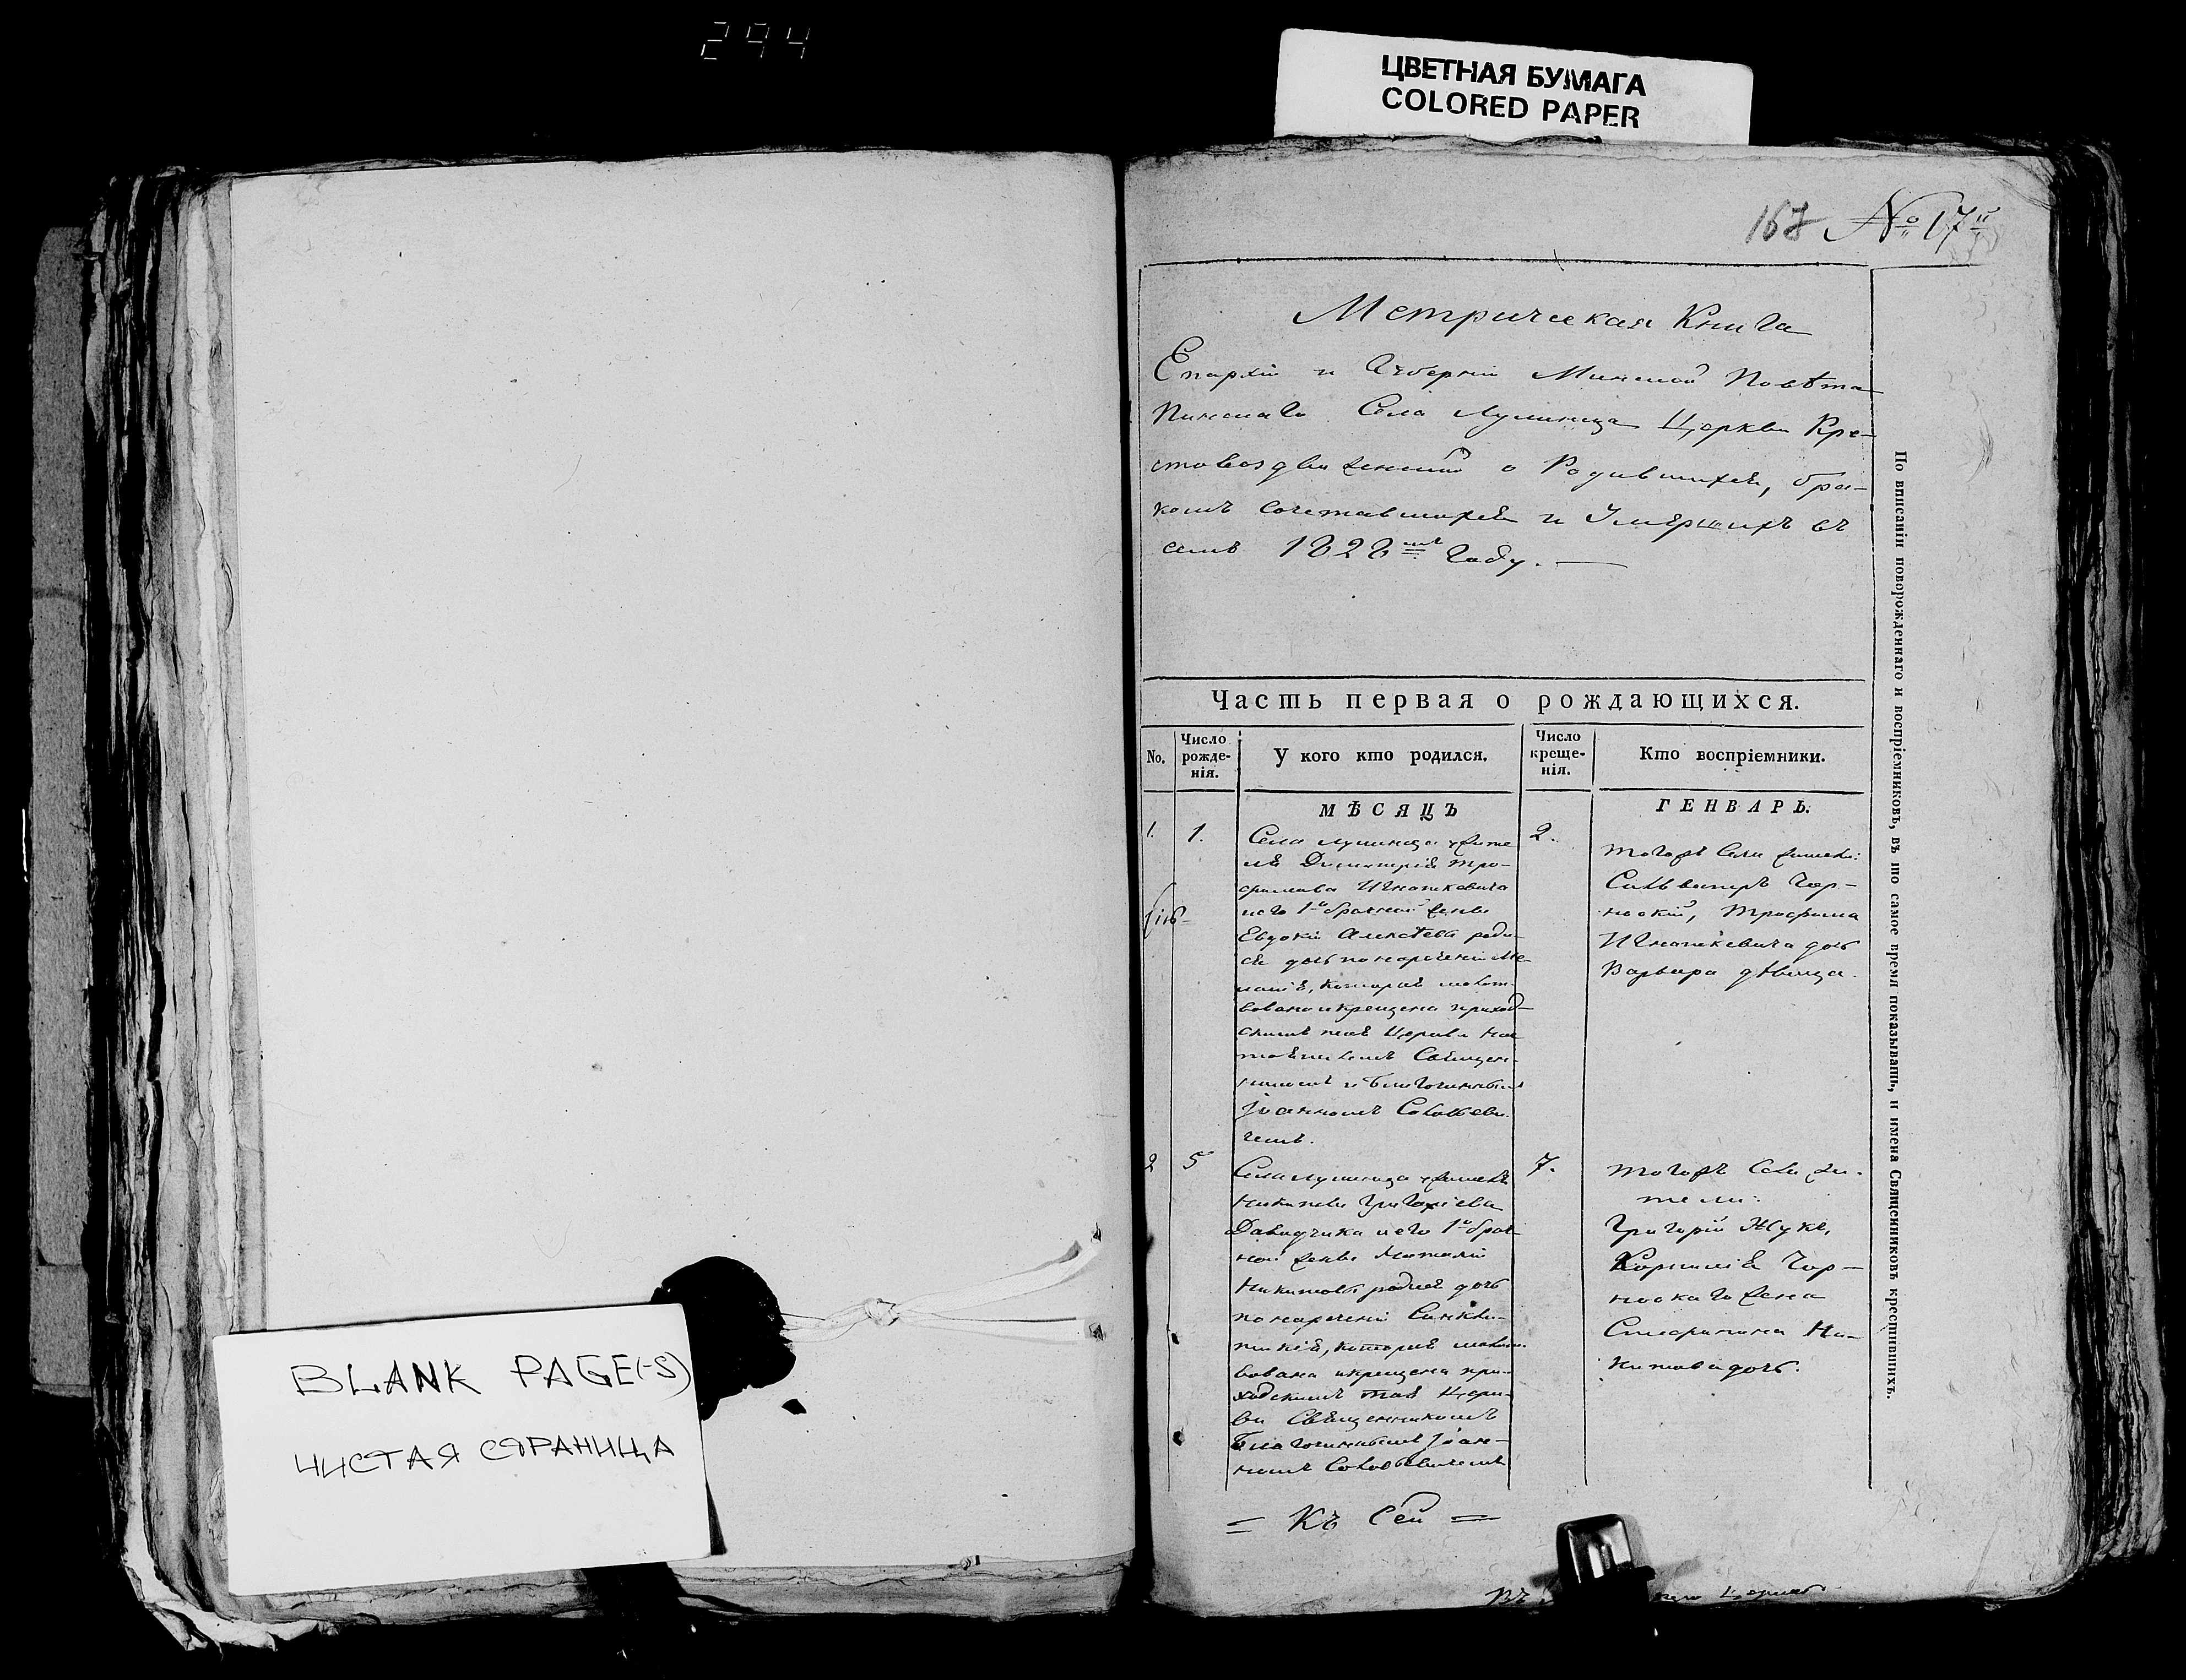 294
ЦВЕТНАЯ БУМАГА
COLORED PAPER
167 № 17й
Метрическая Книга
Епархіи и Губерніи Минской Повѣта
Пинскаго Села Лунинца Церкви Кре-
стовоздвиженской о Родившихся, бра-
комъ сочетавшихся и Умершихъ въ
семъ 1828мъ Году.
Часть первая о рождающихся.
No.
Число рожде-нія.
У кого кто родился.
Число креще-нія.
Кто воспріемники.
МѢСЯЦЪ
ГЕНВАРЬ.
1.
1.
Села Лунинца жите
ля Димитрія Тро-
фимова Игнаткевича
и его 1о брачной жены
Евдокіи Алексѣевы роди-
ся дочь по нареченіи Ме-
ланія, которая молит-
вована и крещена приход-
скимъ тоя Церкви нас
тоятелемъ Священ-
никомъ и Благочиннымъ
Іоанномъ Соловьеви-
чемъ.
2.
тогожъ Села жители:
Сильвестръ Чер-
ноокій, Трофима
Игнаткевича дочь
Варвара дѣвица.
2
5
Села Лунинца жителя
Никиты Григоріева
Давидчика и его 1о брач-
ной жены Наталіи
Никитовы родися дочь
по нареченіи Синкли-
тикія, которая молит-
вована и крещена при-
ходскимъ тоя Церк-
ви Священникомъ
Благочиннымъ Іоан-
номъ Соловьевичемъ
7.
тогожъ Села жи-
тели:
Григорій Жукъ,
Корнилія Чер-
ноокаго жена
Стефанида Ни-
китова дочь.
= Къ Сей =
По вписаніи новорожденнаго и воспріемниковъ, въ то самое время показывать, и имена Священниковъ крестившихъ.
BLANK PAGE(-S)
ЧИСТАЯ СТРАНИЦА